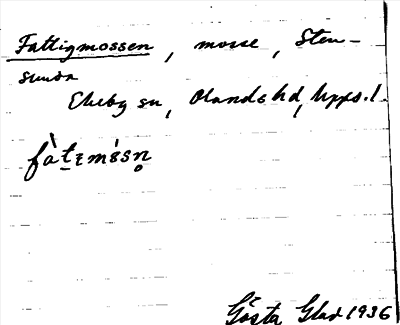 Fattigmossen, mosse, Sten-
sunda
Ekeby sn, Olands hd, Upps. l.
fàtɛmósn̥
Gösta Glad 1936